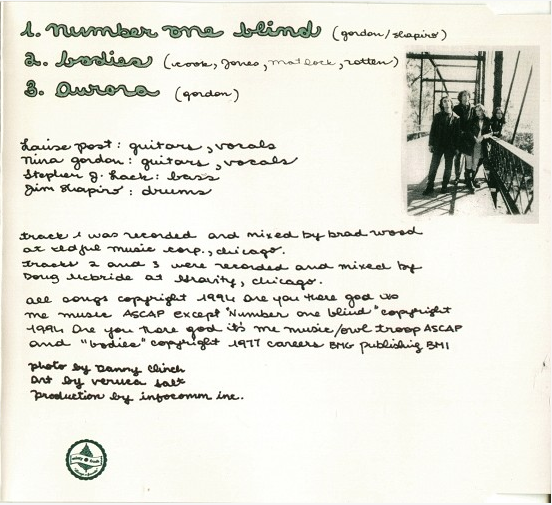 1. number one blind (gordon/shapiro)
2. bodies (cook, jones, matlock, rotten)
3. aurora (gordon)
Louise post: guitars, vocals
Nina gordon: guitars, vocals
Stephen J. Lack: bass
Jim Shapiro: drums
track 1 was recorded and mixed by brad wood
at idful music corp., chicago.
tracks 2 and 3 were recorded and mixed by
Doug McBride at Gravity, chicago.
all songs copyright 1994 are you there god its
me music ASCAP except "Number one blind" copyright
1994 are you there god it's me music/owl troop ASCAP
and "bodies" copyright 1977 careers BMG publishing BMI
photo by Danny Clinch
art by veruca salt
production by infocomm inc.